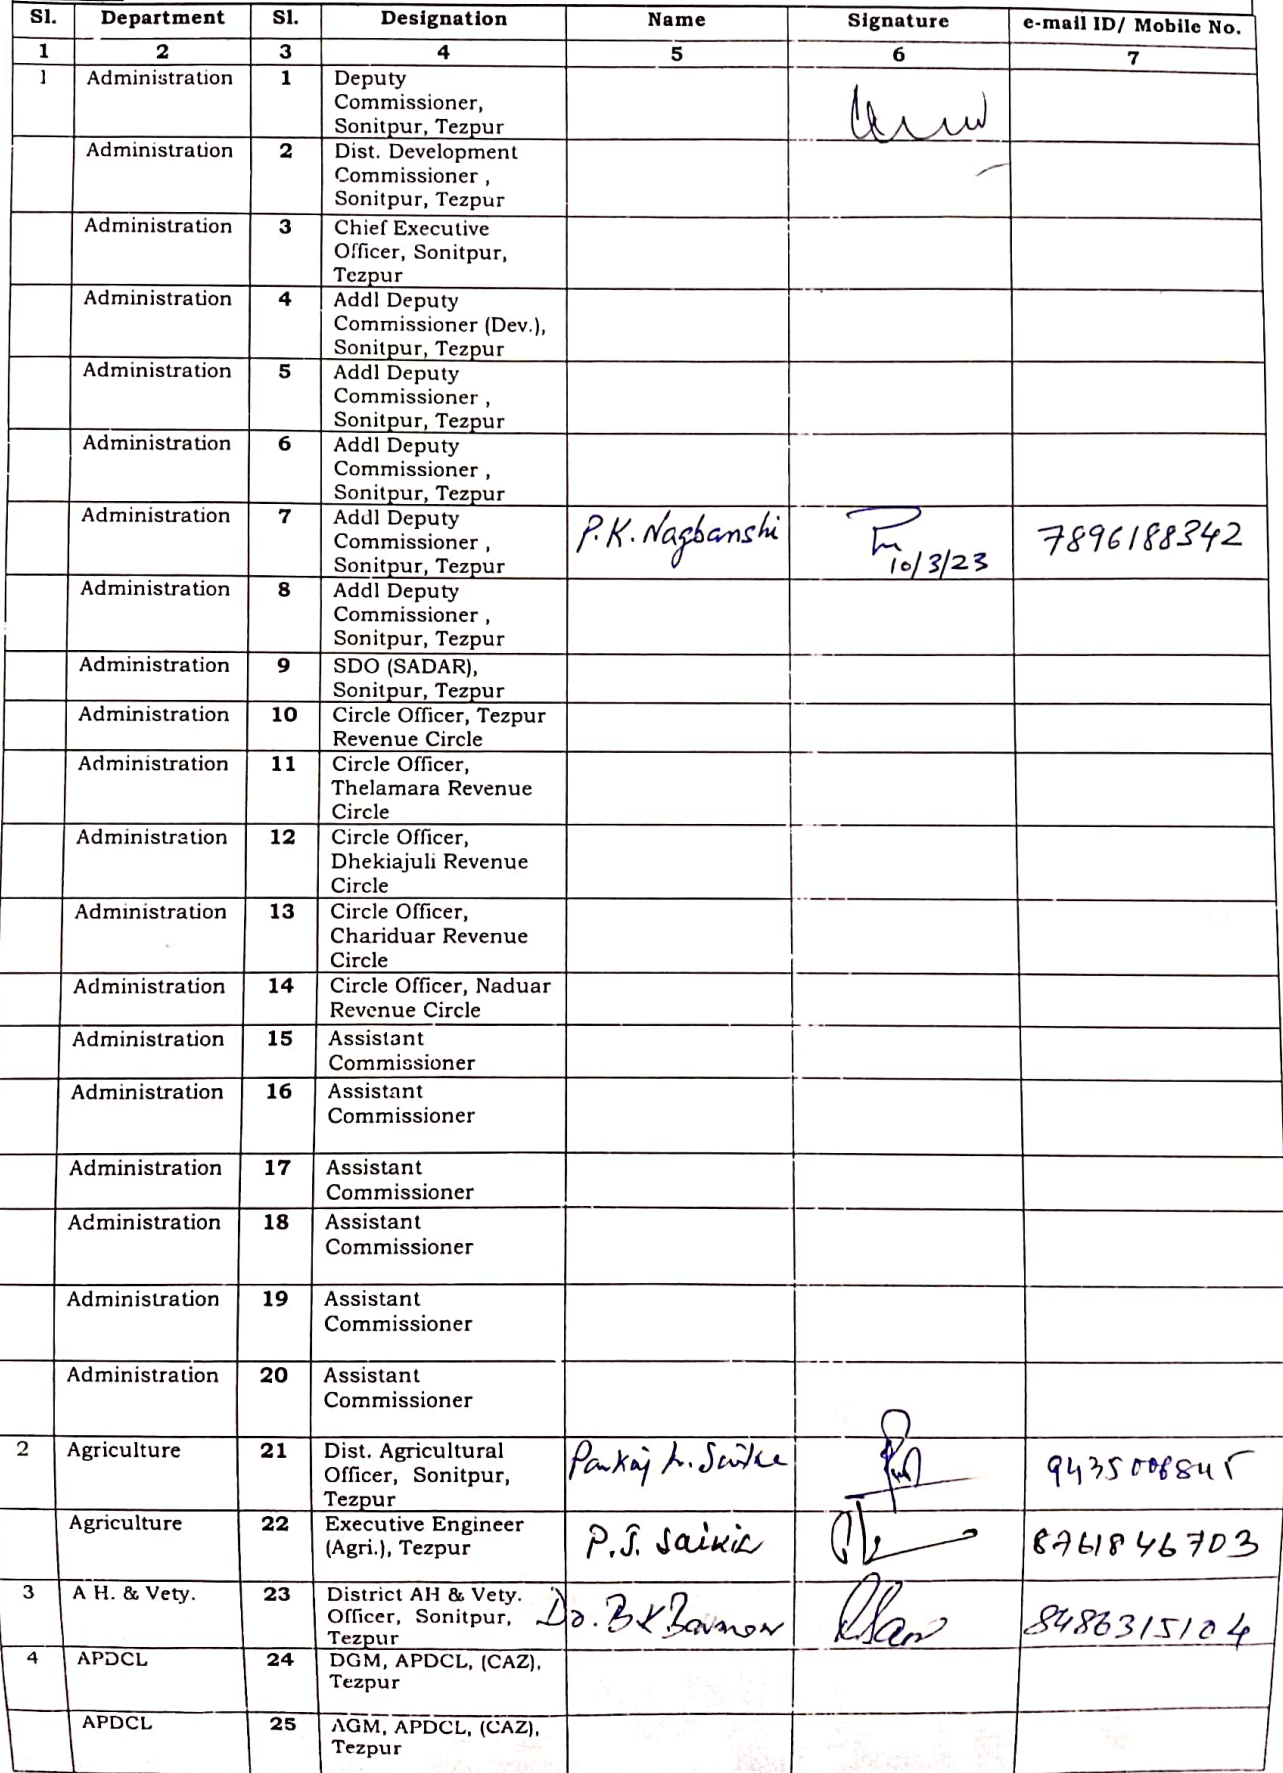 Sl. Department Sl. Designation Name Signature e-mail ID/ Mobile No.
1 2 3 4 5 6 7
1 Administration 1 Deputy
Commissioner,
Sonitpur, Tezpur
Administration 2 Dist. Development
Commissioner ,
Sonitpur, Tezpur
Administration 3 Chief Executive
Officer, Sonitpur,
Tezpur
Administration 4 Addl Deputy
Commissioner (Dev.),
Sonitpur, Tezpur
Administration 5 Addl Deputy
Commissioner ,
Sonitpur, Tezpur
Administration 6 Addl Deputy
Commissioner ,
Sonitpur, Tezpur
Administration 7 Addl Deputy P.K. Nagbanshi 7896188342
Commissioner , 10/3/23
Sonitpur, Tezpur
Administration 8 Addl Deputy
Commissioner ,
Sonitpur, Tezpur
Administration 9 SDO (SADAR),
Sonitpur, Tezpur
Administration 10 Circle Officer, Tezpur
Revenue Circle
Administration 11 Circle Officer,
Thelamara Revenue
Circle
Administration 12 Circle Officer,
Dhekiajuli Revenue
Circle
Administration 13 Circle Officer,
Chariduar Revenue
Circle
Administration 14 Circle Officer, Naduar
Revenue Circle
Administration 15 Assistant
Commissioner
Administration 16 Assistant
Commissioner
Administration 17 Assistant
Commissioner
Administration 18 Assistant
Commissioner
Administration 19 Assistant
Commissioner
Administration 20 Assistant
Commissioner
2 Agriculture 21 Dist. Agricultural Pankaj
Officer, Sonitpur,
Tezpur
Agriculture 22 Executive Engineer P.J. Saikia 8761846703
(Agri.), Tezpur
3 A H. & Vety. 23 District AH & Vety. Dr. B K Barman 8486315104
Officer, Sonitpur,
Tezpur
4 APDCL 24 DGM, APDCL, (CAZ),
Tezpur
APDCL 25 AGM, APDCL, (CAZ),
Tezpur